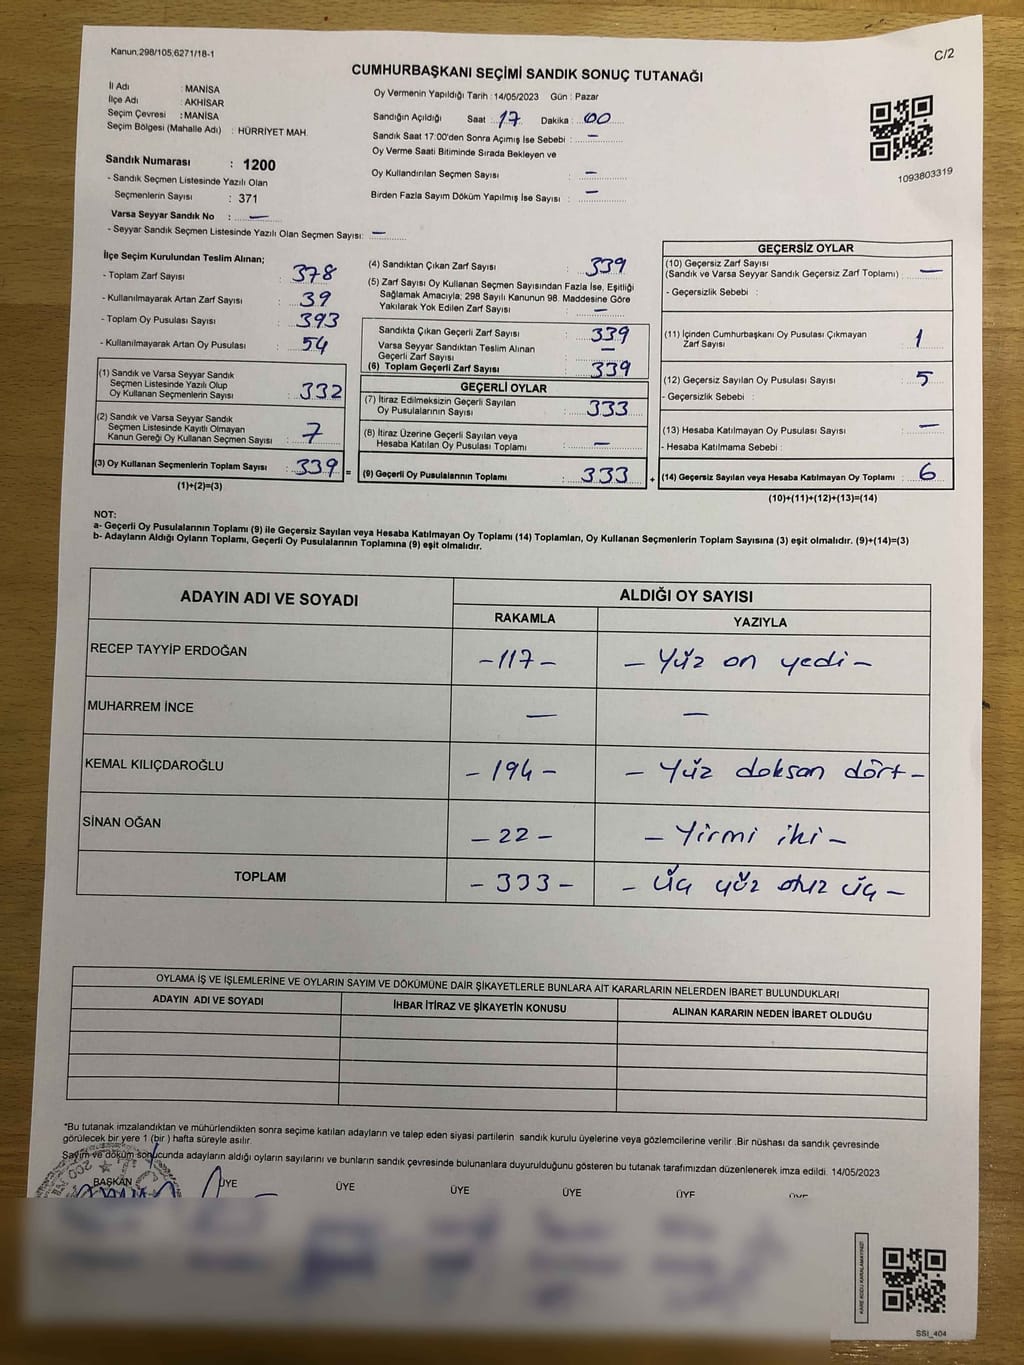 Kanun,298/105,6271/18-1
C/2
CUMHURBAŞKANI SEÇİMİ SANDIK SONUÇ TUTANAĞI
İl Adı : MANİSA
İlçe Adı : AKHİSAR
Seçim Çevresi : MANİSA
Seçim Bölgesi (Mahalle Adı) : HÜRRİYET MAH.
Sandık Numarası : 1200
- Sandık Seçmen Listesinde Yazılı Olan
Seçmenlerin Sayısı : 371
Varsa Seyyar Sandık No : —
- Seyyar Sandık Seçmen Listesinde Yazılı Olan Seçmen Sayısı: —
Oy Vermenin Yapıldığı Tarih : 14/05/2023 Gün : Pazar
Sandığın Açıldığı Saat : 17 Dakika : 00
Sandık Saat 17:00'den Sonra Açımış İse Sebebi : —
Oy Verme Saati Bitiminde Sırada Bekleyen ve
Oy Kullandırılan Seçmen Sayısı : —
Birden Fazla Sayım Döküm Yapılmış İse Sayısı : —
1093803319
İlçe Seçim Kurulundan Teslim Alınan;
- Toplam Zarf Sayısı : 378
- Kullanılmayarak Artan Zarf Sayısı : 39
- Toplam Oy Pusulası Sayısı : 393
- Kullanılmayarak Artan Oy Pusulası : 54
(1) Sandık ve Varsa Seyyar Sandık
Seçmen Listesinde Yazılı Olup
Oy Kullanan Seçmenlerin Sayısı : 332
(2) Sandık ve Varsa Seyyar Sandık
Seçmen Listesinde Kayıtlı Olmayan
Kanun Gereği Oy Kullanan Seçmen Sayısı : 7
(3) Oy Kullanan Seçmenlerin Toplam Sayısı : 339 =
(1)+(2)=(3)
(4) Sandıktan Çıkan Zarf Sayısı : 339
(5) Zarf Sayısı Oy Kullanan Seçmen Sayısından Fazla İse, Eşitliği
Sağlamak Amacıyla; 298 Sayılı Kanunun 98. Maddesine Göre
Yakılarak Yok Edilen Zarf Sayısı : —
Sandıkta Çıkan Geçerli Zarf Sayısı : 339
Varsa Seyyar Sandıktan Teslim Alınan
Geçerli Zarf Sayısı : —
(6) Toplam Geçerli Zarf Sayısı : 339
GEÇERLİ OYLAR
(7) İtiraz Edilmeksizin Geçerli Sayılan
Oy Pusulalarının Sayısı : 333
(8) İtiraz Üzerine Geçerli Sayılan veya
Hesaba Katılan Oy Pusulası Toplamı : —
(9) Geçerli Oy Pusulalarının Toplamı : 333 +
GEÇERSİZ OYLAR
(10) Geçersiz Zarf Sayısı
(Sandık ve Varsa Seyyar Sandık Geçersiz Zarf Toplamı) : —
- Geçersizlik Sebebi :
(11) İçinden Cumhurbaşkanı Oy Pusulası Çıkmayan
Zarf Sayısı : 1
(12) Geçersiz Sayılan Oy Pusulası Sayısı : 5
- Geçersizlik Sebebi :
(13) Hesaba Katılmayan Oy Pusulası Sayısı : —
- Hesaba Katılmama Sebebi :
(14) Geçersiz Sayılan veya Hesaba Katılmayan Oy Toplamı : 6
(10)+(11)+(12)+(13)=(14)
NOT:
a- Geçerli Oy Pusulalarının Toplamı (9) ile Geçersiz Sayılan veya Hesaba Katılmayan Oy Toplamı (14) Toplamları, Oy Kullanan Seçmenlerin Toplam Sayısına (3) eşit olmalıdır. (9)+(14)=(3)
b- Adayların Aldığı Oyların Toplamı, Geçerli Oy Pusulalarının Toplamına (9) eşit olmalıdır.
ADAYIN ADI VE SOYADI ALDIĞI OY SAYISI
RAKAMLA YAZIYLA
RECEP TAYYİP ERDOĞAN – 117 – – Yüz on yedi –
MUHARREM İNCE — —
KEMAL KILIÇDAROĞLU – 194 – – Yüz doksan dört –
SİNAN OĞAN – 22 – – Yirmi iki –
TOPLAM – 333 – – Üç yüz otuz üç –
OYLAMA İŞ VE İŞLEMLERİNE VE OYLARIN SAYIM VE DÖKÜMÜNE DAİR ŞİKAYETLERLE BUNLARA AİT KARARLARIN NELERDEN İBARET BULUNDUKLARI
ADAYIN ADI VE SOYADI İHBAR İTİRAZ VE ŞİKAYETİN KONUSU ALINAN KARARIN NEDEN İBARET OLDUĞU
"Bu tutanak imzalandıktan ve mühürlendikten sonra seçime katılan adayların ve talep eden siyasi partilerin sandık kurulu üyelerine veya gözlemcilerine verilir .Bir nüshası da sandık çevresinde
görülecek bir yere 1 (bir ) hafta süreyle asılır.
Sayım ve döküm sonucunda adayların aldığı oyların sayılarını ve bunların sandık çevresinde bulunanlara duyurulduğunu gösteren bu tutanak tarafımızdan düzenlenerek imza edildi. 14/05/2023
BAŞKAN ÜYE ÜYE ÜYE ÜYE ÜYE ÜYE
KARE KODU KARALAMAYINIZ!
SSI_404